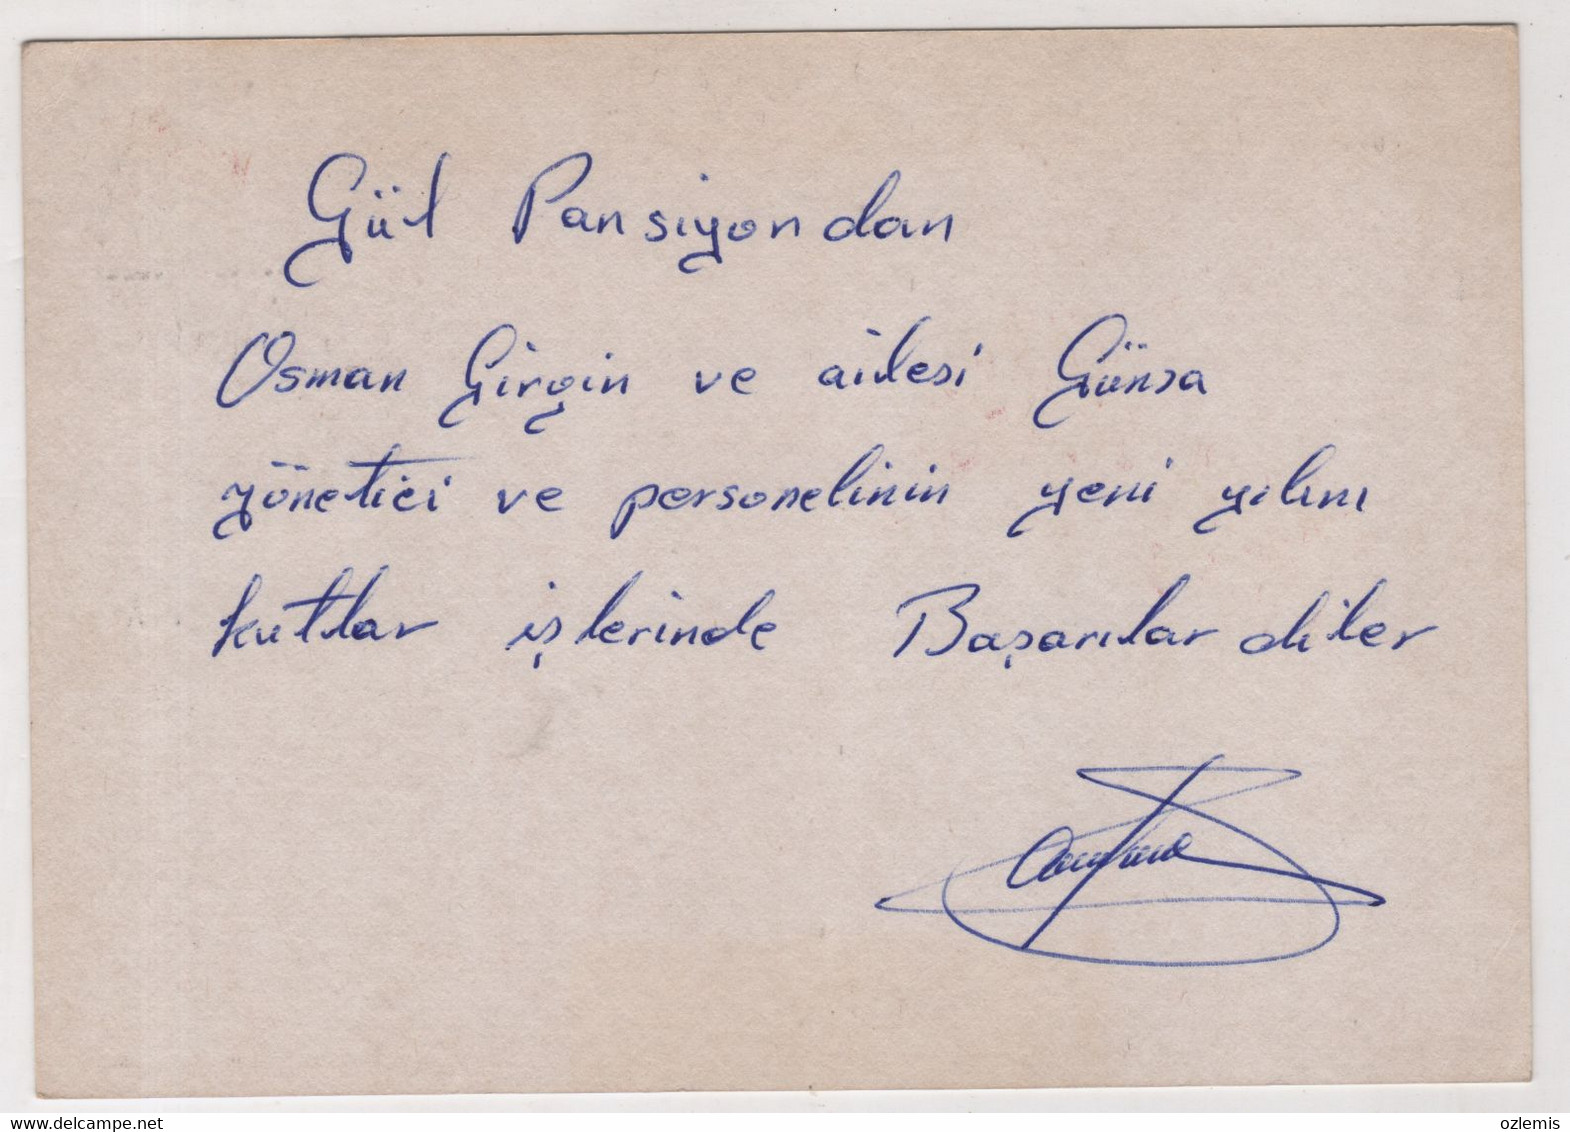 Gül Pansiyondan
Osman Girgin ve ailesi Günsa
yönetici ve personelinin yeni yılını
kutlar işlerinde Başarılar diler
ozlemis